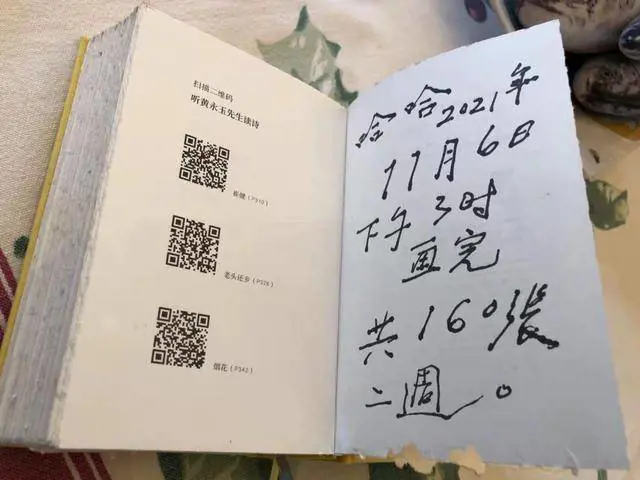 扫描二维码
听黄永玉先生读诗
崔健（P310）
老头还乡（P328）
烟花（P342）
哈哈2021年
11月6日
下午3时
画完
共160張
二週。